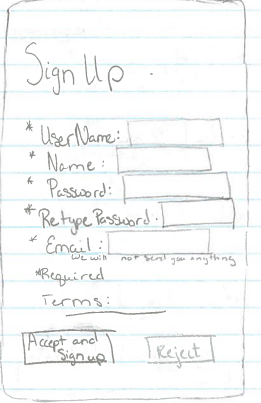 Sign Up
* UserName:
* Name:
* Password:
* Retype Password:
* Email:
We will not send you anything
*Required
Terms:
Accept and
Sign up
Reject